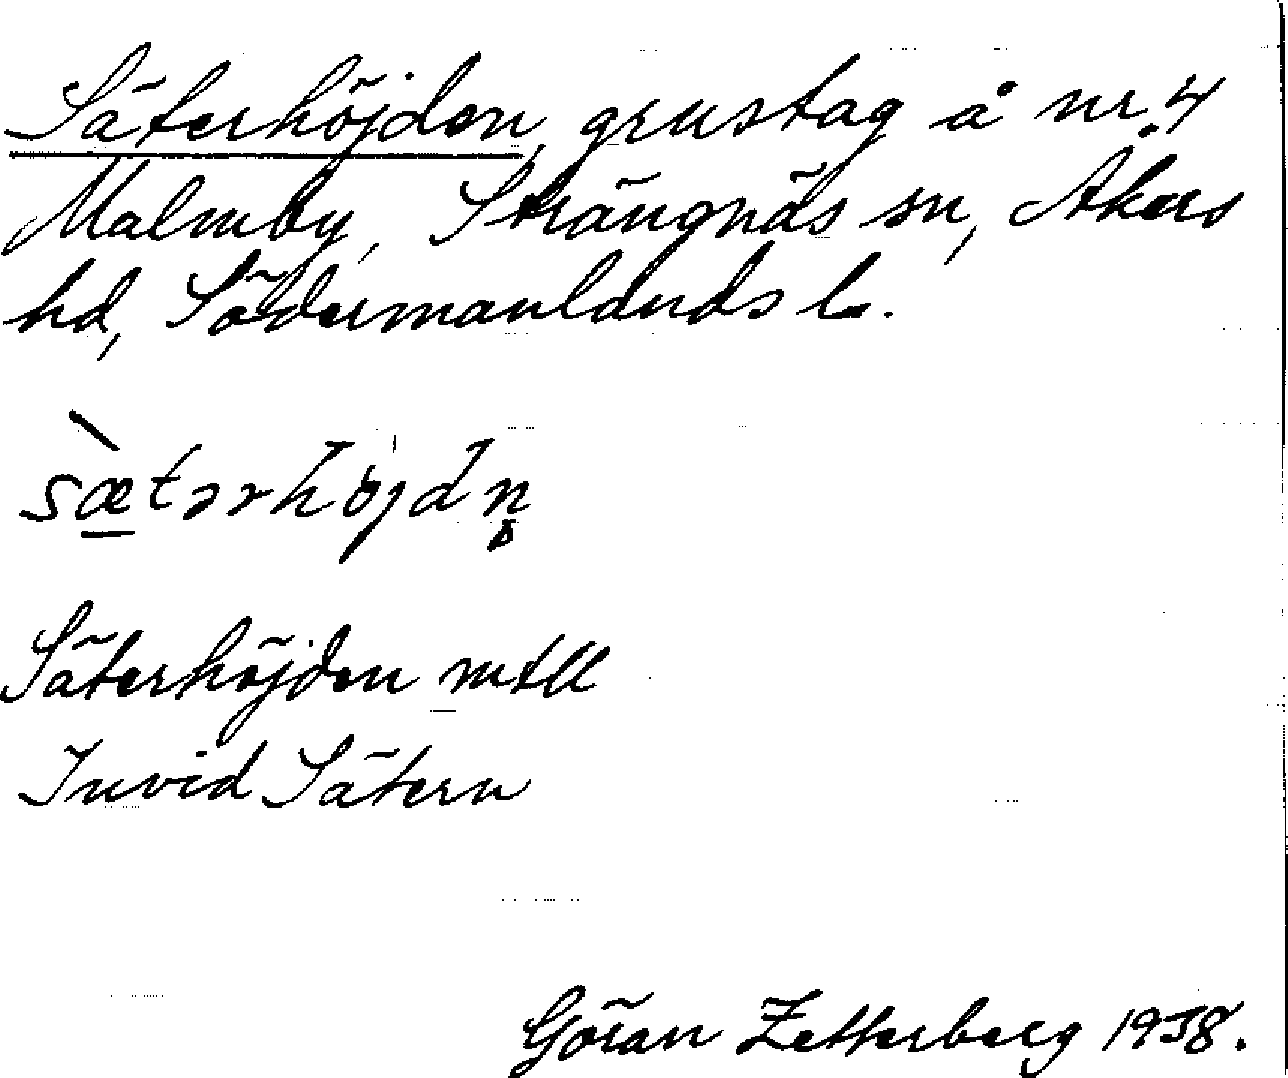 Säterhöjden, grustag å nr 4
Malmby, Strängnäs sn, Åkers
hd, Södermanlands l.
sæ̀tərhöjdn̥
Säterhöjden mtll
Invid Sätern
Göran Zetterberg 1938.